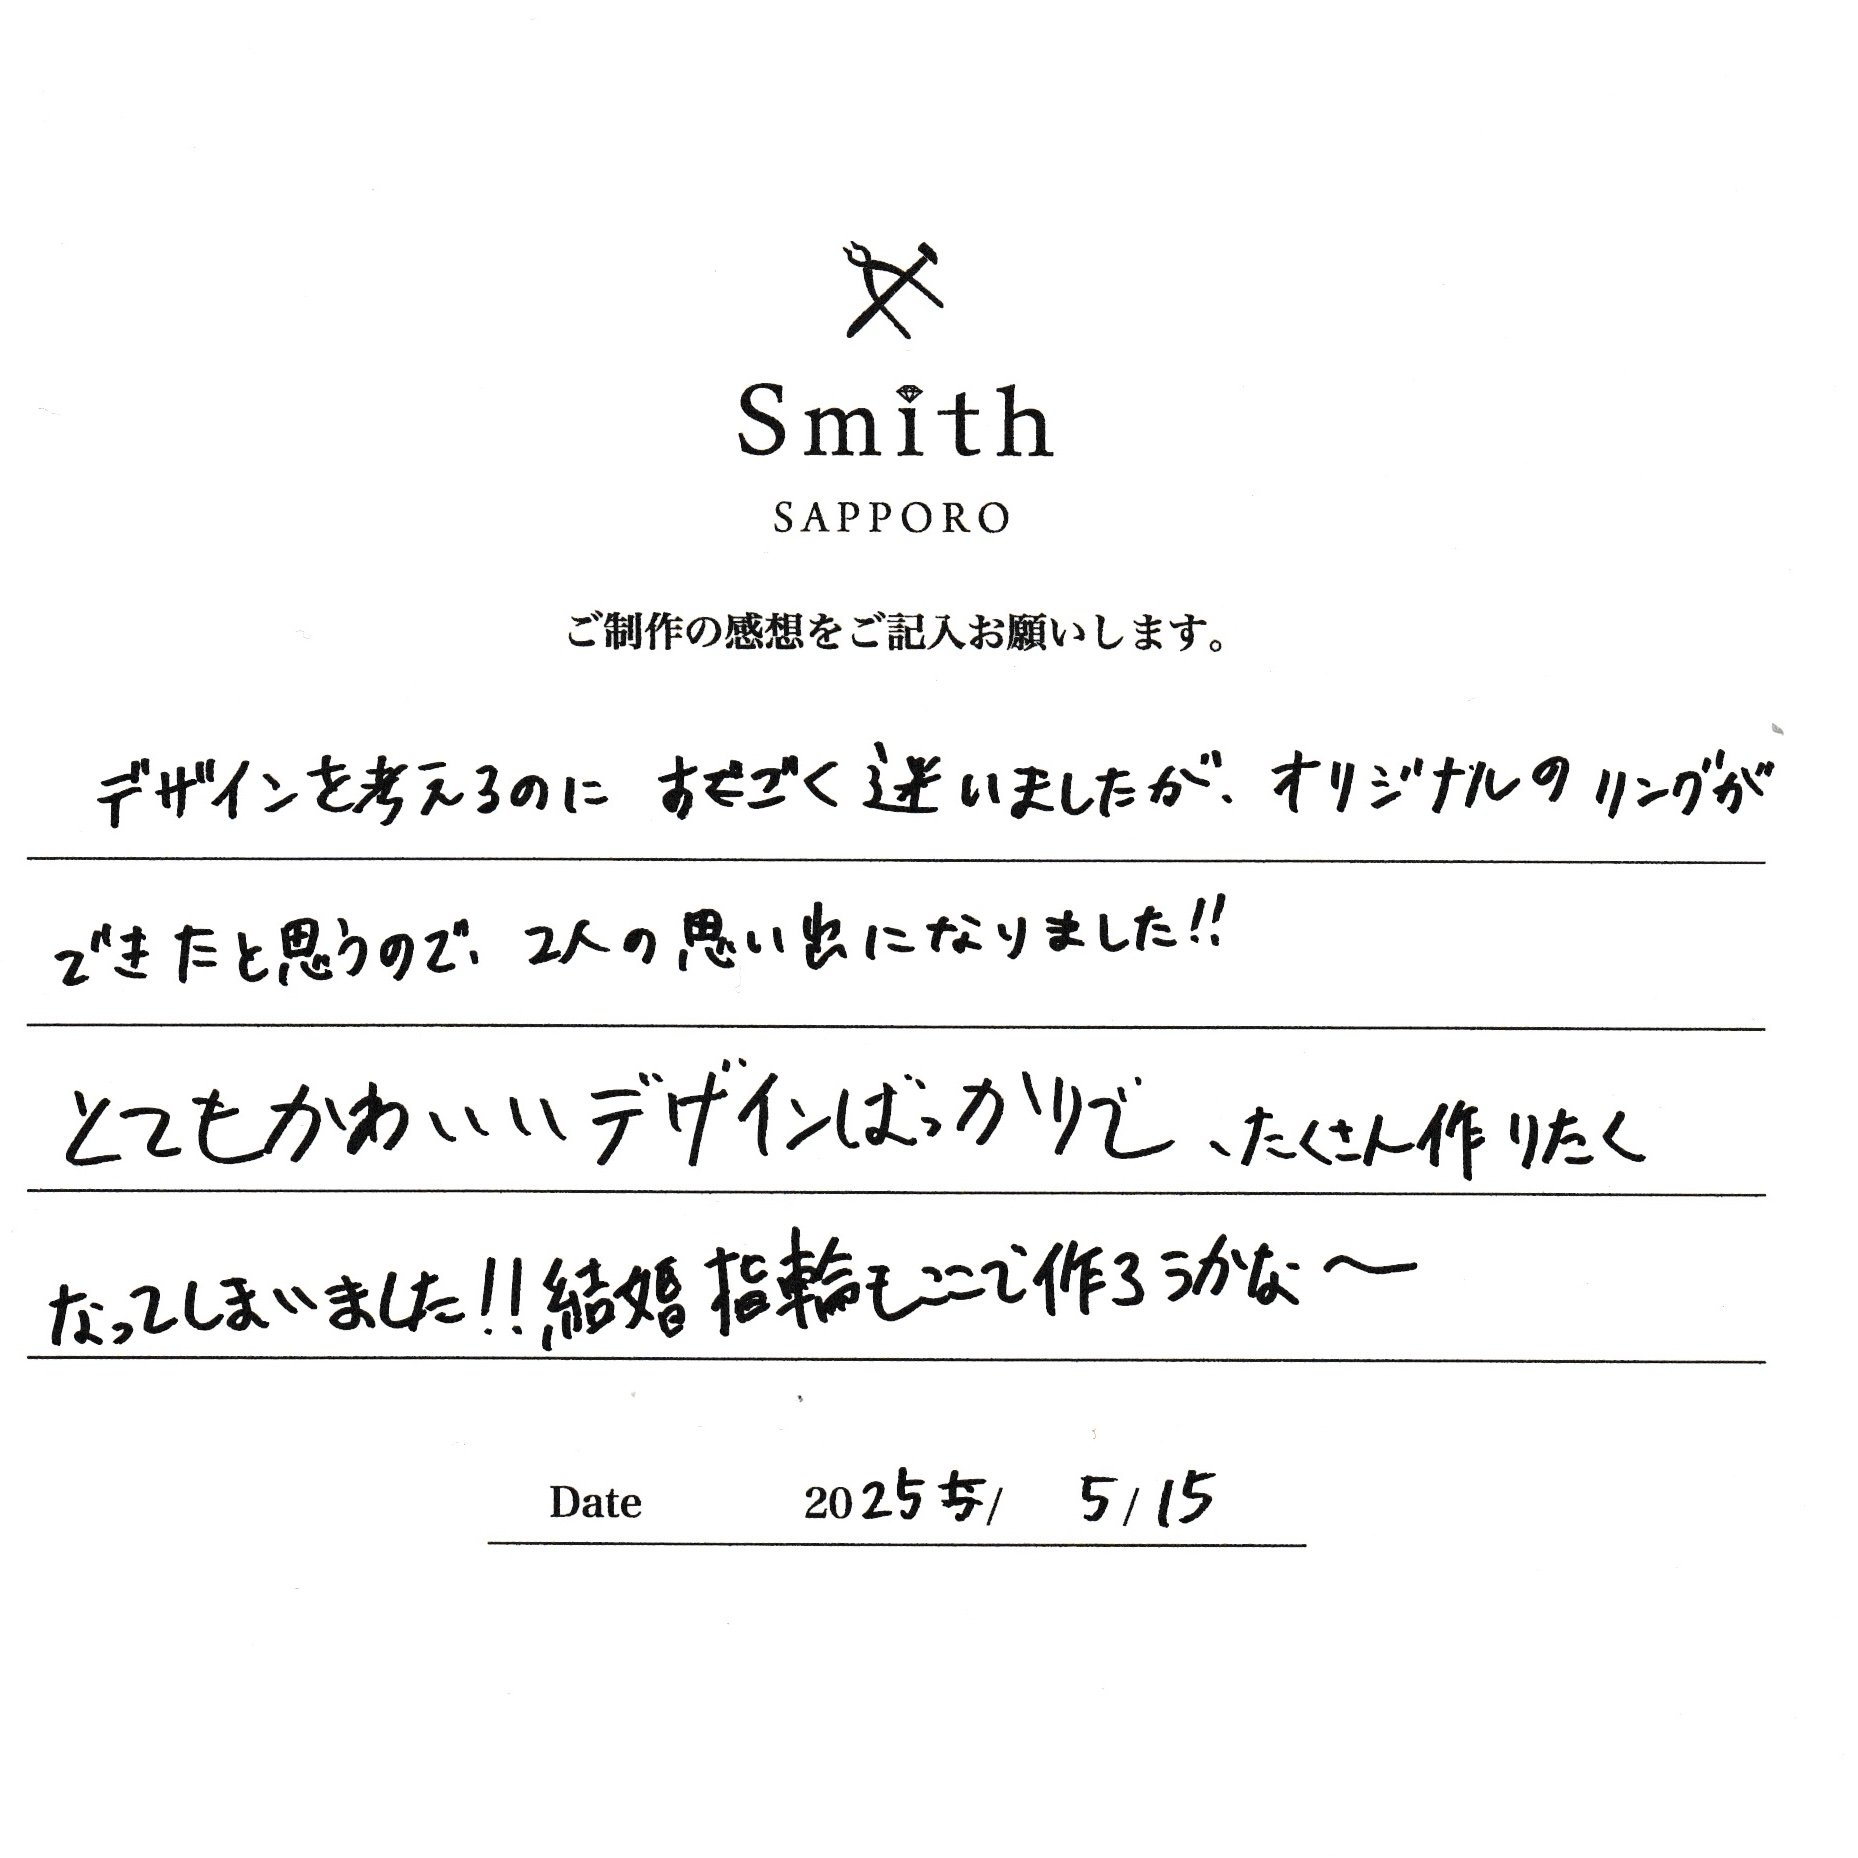 Smith
SAPPORO
ご制作の感想をご記入お願いします。
デザインを考えるのに すごく迷いましたが、オリジナルのリングが
できたと思うので、2人の思い出になりました!!
とてもかわいいデザインばっかりで、たくさん作りたく
なってしまいました!!結婚指輪もここで作ろうかな〜
Date 2025/ 5/15